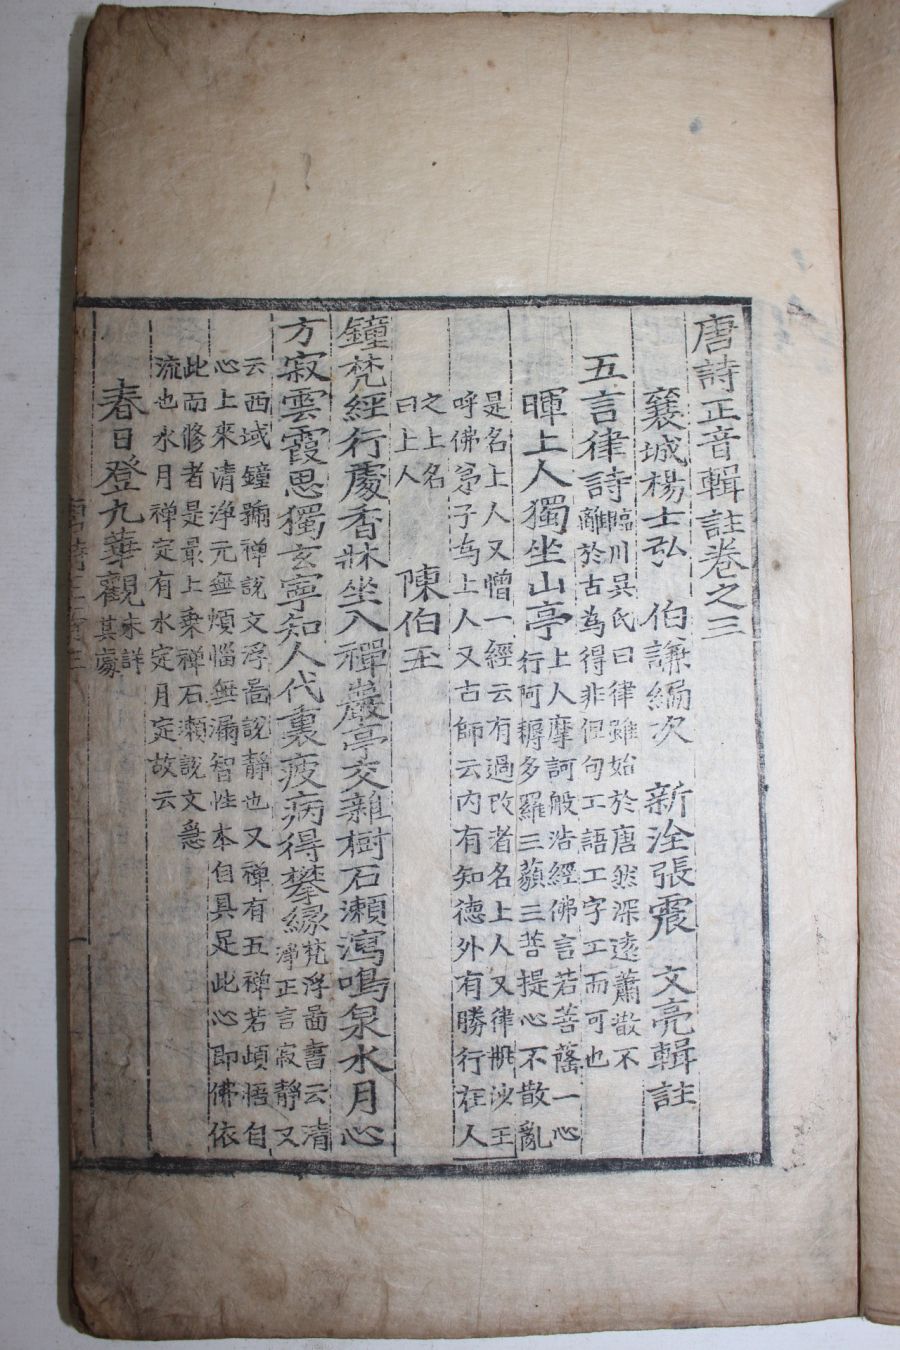 唐詩正音輯註卷之三
襄城楊士弘 伯謙編次 新淦張震 文亮輯註
五言律詩 臨川吳氏曰律雖始於唐然深遠蕭散不
離於古為得非但句工語工字工而可也
暉上人獨坐山亭 上人摩訶般若經佛言若菩薩一心
行阿耨多羅三藐三菩提心不散亂
是名上人又增一經云有過改者名上人又律瓶沙王
呼佛弟子為上人又古師云內有知德外有勝行在人
之上名
曰上人 陳伯玉
鐘梵經行處香牀坐入禪巖亭交雜樹石瀨瀉鳴泉水月心
方寂雲霞思獨玄寧知人代裏疲病得攀緣 梵浮啚書云清
淨正言寂靜又
云西域鐘號禪說文浮啚說靜也又禪有五禪若頓悟自
心上來清淨元無煩惱無漏智性本自具足此心即佛依
此而修者是最上乗禪石瀨說文急
流也水月禪定有水定月定故云
春日登九華觀 未詳
其處